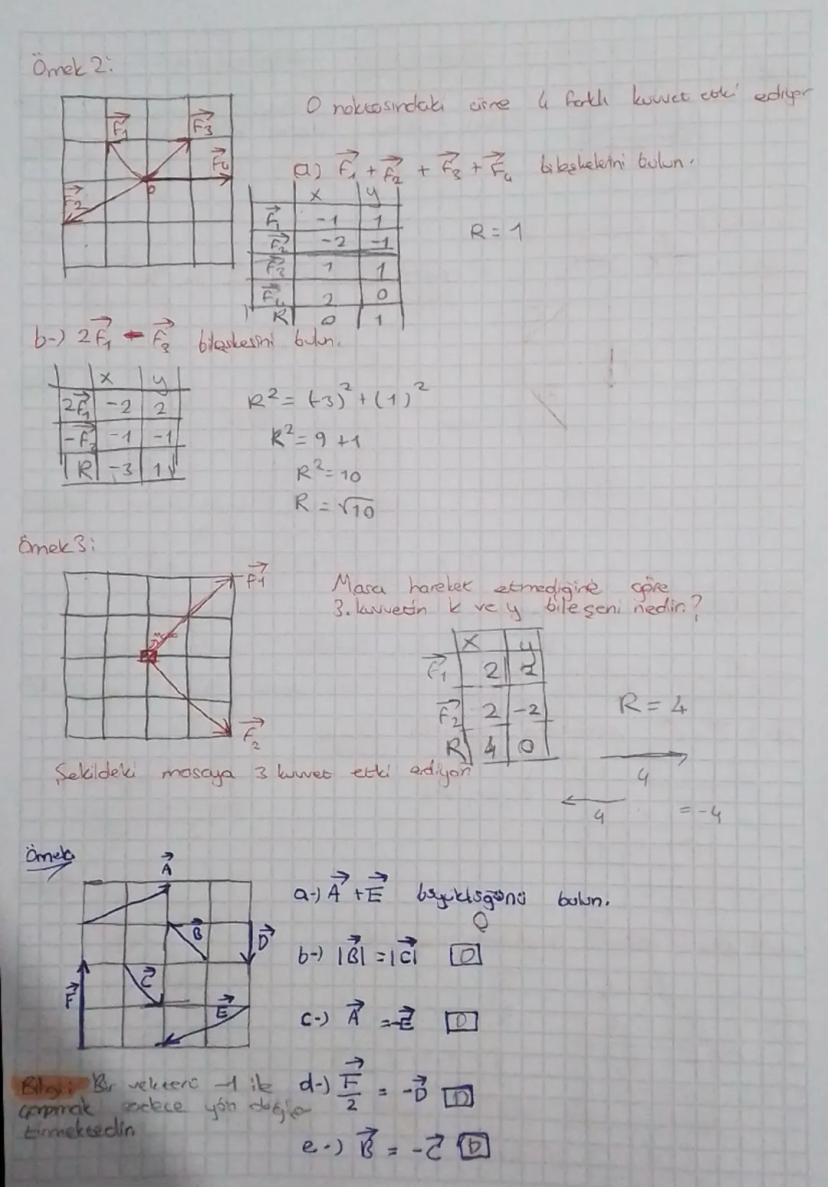 Örnek 2:
O noktasındaki cisme 4 farklı kuvvet etki ediyor
F₁ F₃ F₄ F₂ O
a) F₁ + F₂ + F₃ + F₄ bileşkelerini bulun.
x y
F₁ -1 1
F₂ -2 -1
F₃ 1 1
F₄ 2 0
R 0 1
R = 1
b-) 2F₁ - F₃ bileşkesini bulun.
x y
2F₁ -2 2
-F₃ -1 -1
R -3 1
R² = (-3)² + (1)²
R² = 9 + 1
R² = 10
R = √10
Örnek 3:
F₁
F₂
Masa hareket etmediğine göre
3. kuvvetin x ve y bileşeni nedir?
x y
F₁ 2 2
F₂ 2 -2
R 4 0
R = 4
4
4 = -4
Şekildeki masaya 3 kuvvet etki ediyor
Örnek
A B D C F E
a-) A + E büyüklüğünü bulun.
0
b-) |B| = |C| D
c-) A = -E D
d-) F/2 = -D D
e-) B = -C D
Bilgi: Bir vektörü -1 ile
çarpmak sadece yön değiş
tirmektedir.